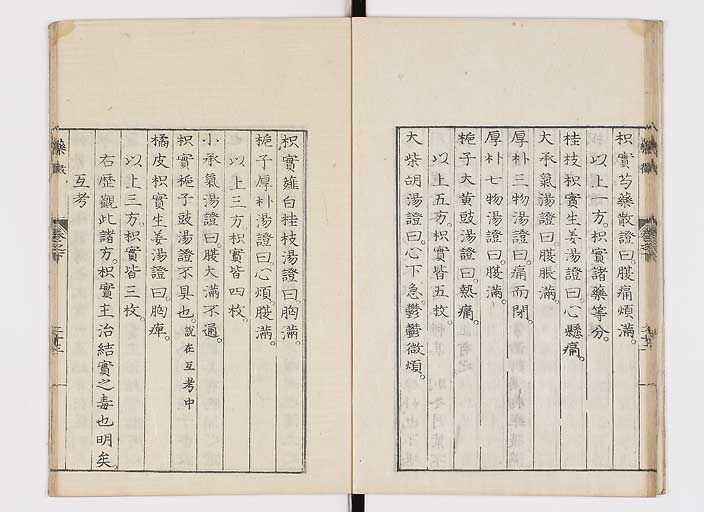 枳實芍藥散證曰。腹痛煩滿。
以上一方。枳實諸藥等分。
桂枝枳實生姜湯證曰。心懸痛。
大承氣湯證曰。腹脹滿。
厚朴三物湯證曰。痛而閉。
厚朴七物湯證曰。腹滿。
梔子大黃豉湯證曰。熱痛。
以上五方。枳實皆五枚。
大柴胡湯證曰。心下急。鬱鬱微煩。
枳實薤白桂枝湯證曰。胸滿。
梔子厚朴湯證曰。心煩。腹滿。
以上三方。枳實皆四枚。
小承氣湯證曰。腹大滿不通。
枳實梔子豉湯證不具也。說在互考中
橘皮枳實生姜湯證曰。胸痺。
以上三方。枳實皆三枚。
右歷觀此諸方。枳實主治結實之毒也明矣。
互考
藥徵
卷之下
藥徵
卷之下